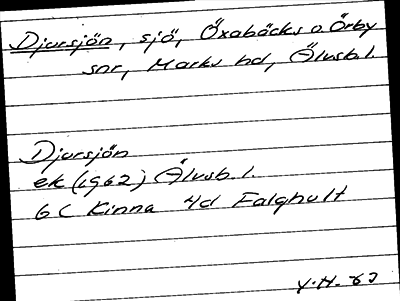 Djursjön, sjö, Öxabäcks o. Örby
snr, Marks hd, Älvsb. l.
Djursjön
ek (1962) Älvsb. l.
6 C Kinna 4d Falghult
Y.H. 63